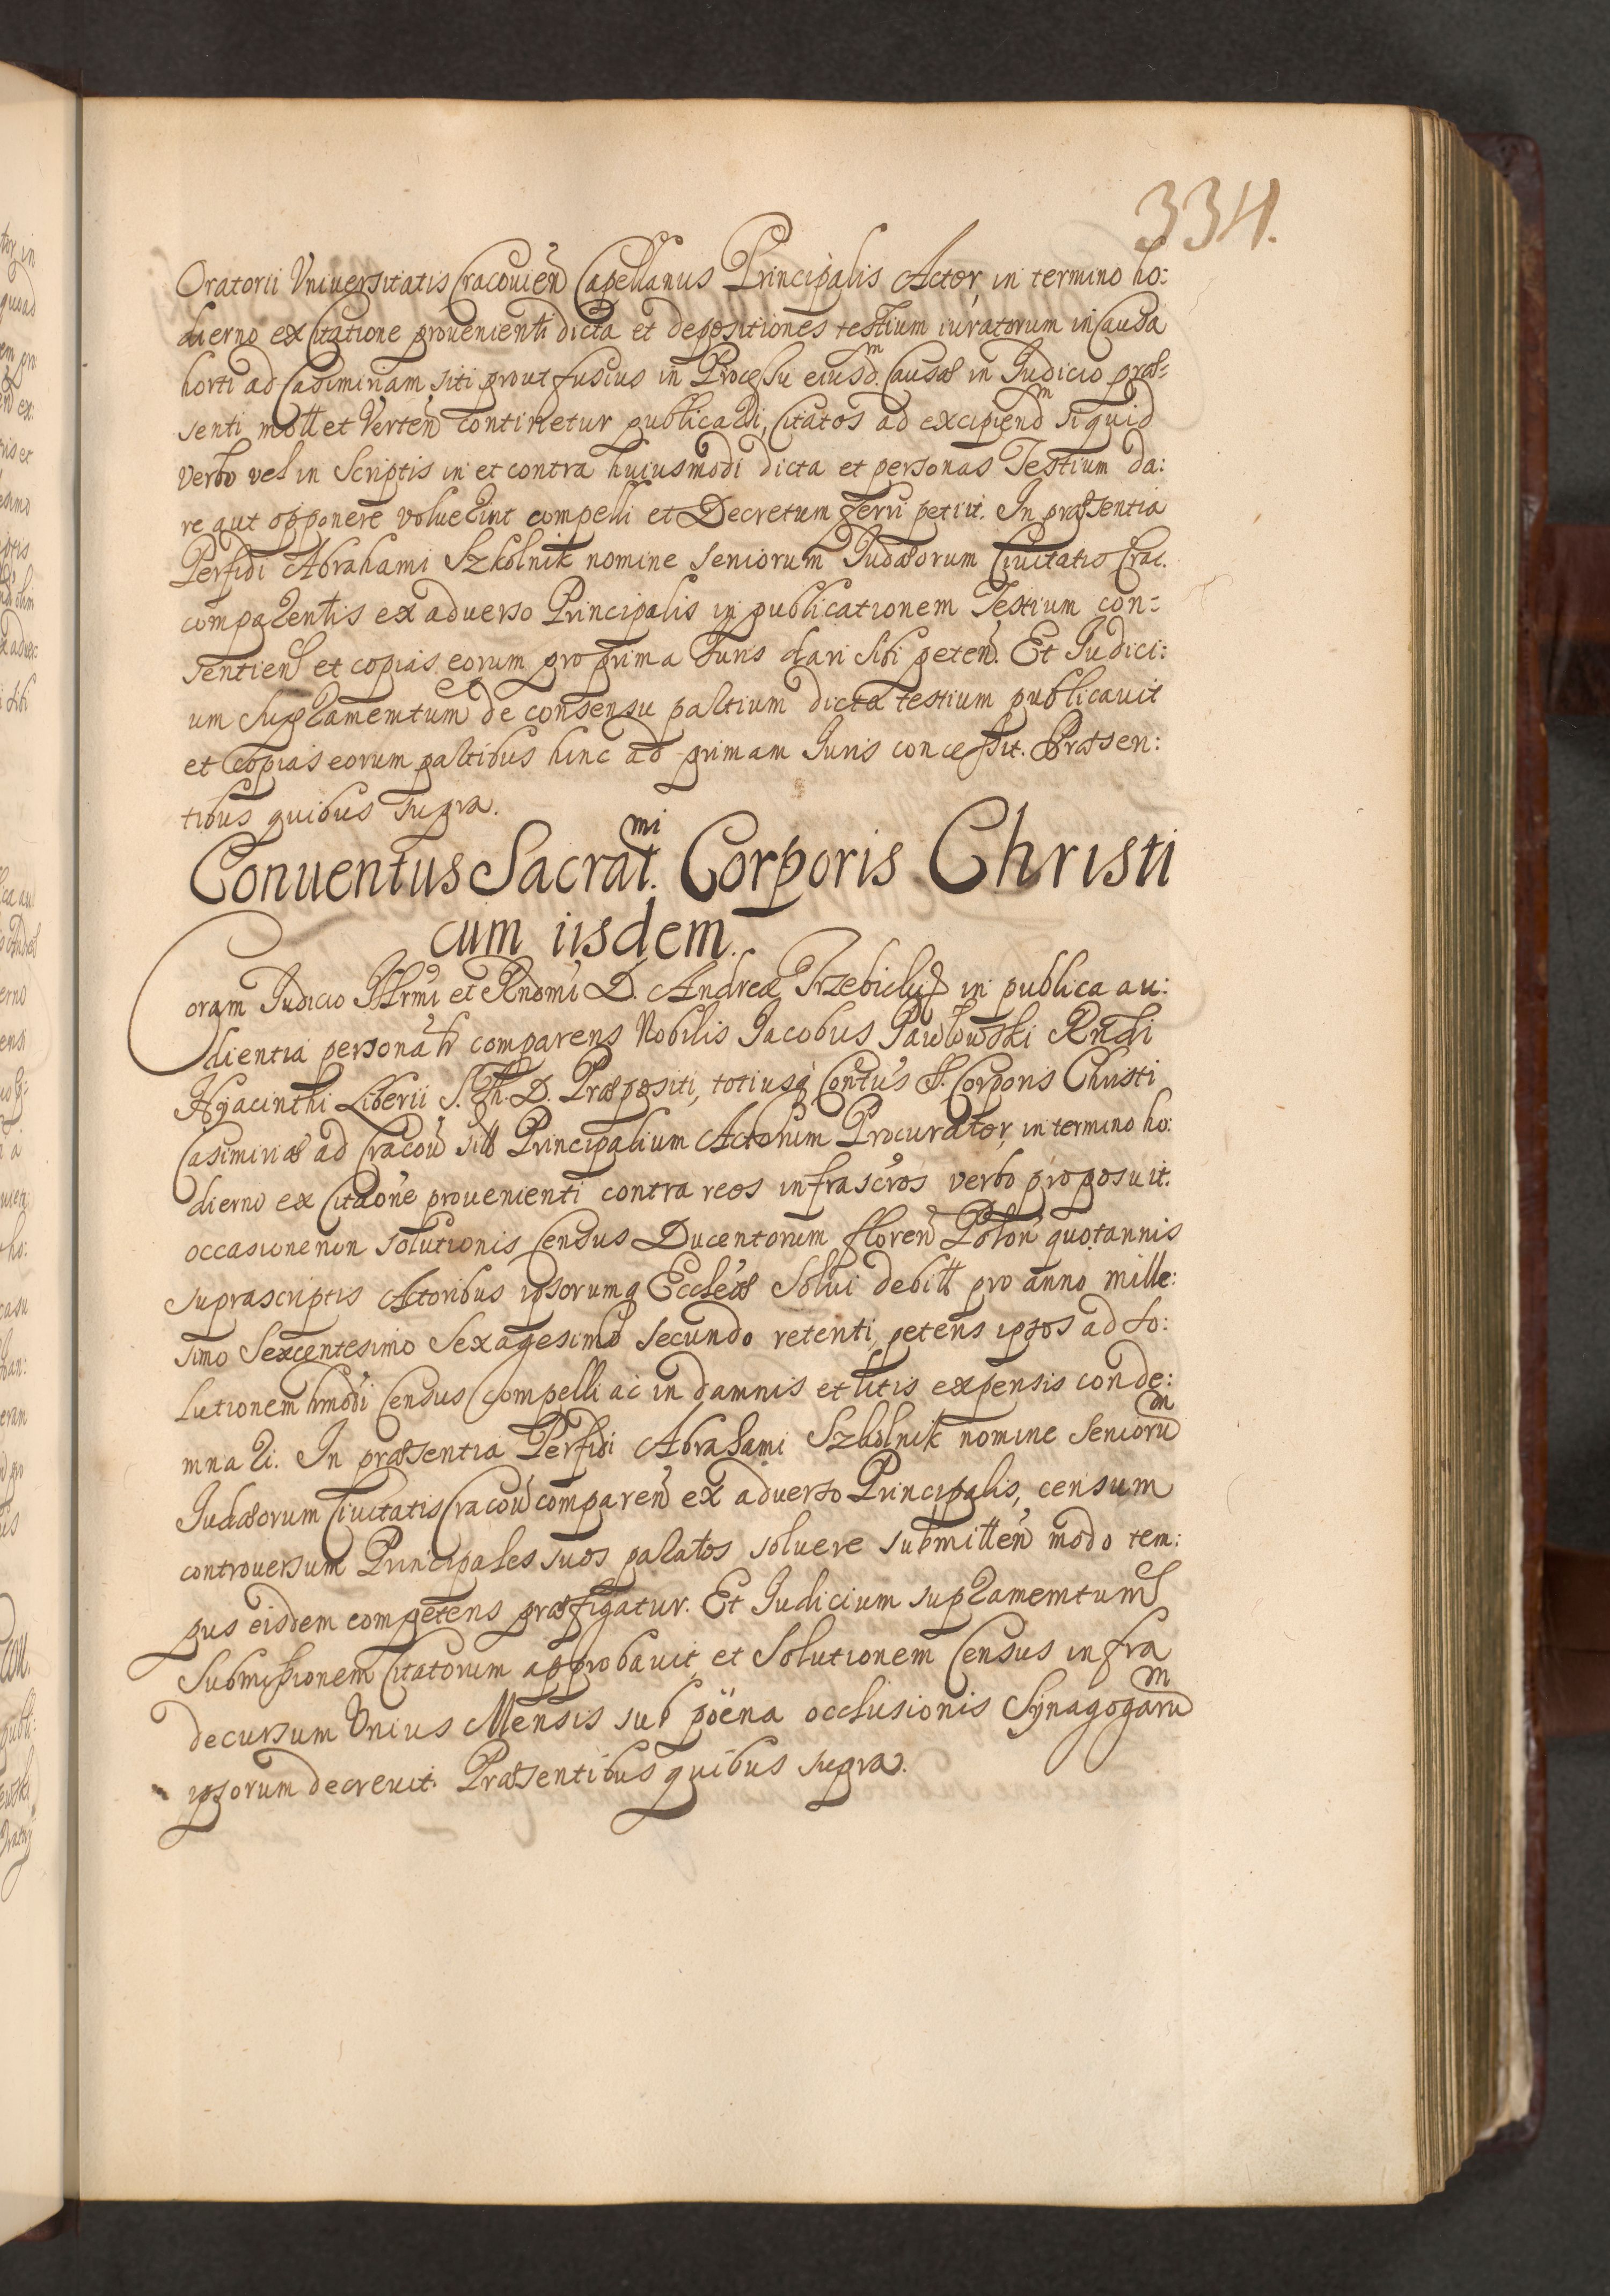 334.
Oratorii Universitatis Cracovien Capellanus Principalis Actor, in termino ho:
dierno ex Citatione provenienti dicta et depositiones testium iuratorum in Causa
horti ad Casimiriam siti prout fusius in Processu eiusdm. Causæ in Judicio præ:
senti mott et Verten continetur publicari, Citatos ad excipiendm siquid
verbo vel in Scriptis in et contra huiusmodi dicta et personas Testium da:
re aut opponere voluerint compelli et Decretum ferri petiit. In præsentia
Perfidi Abrahami Szkolnik nomine seniorum Judæorum Civitatis Crac.
comparentis ex adverso Principalis in publicationem Testium con:
sentien et copias eorum pro prima Juris dari sibi peten. Et Judici:
um supramemtum de consensu partium dicta testium publicavit
et copias eorum partibus hinc ad primam Juris concessit. Præsen:
tibus quibus supra.
Conventus Sacrat.mi Corporis Christi
cum iisdem.
Coram Judicio Illrmi et Rndmi D. Andreæ Trzebicky in publica au:
dientia personatr comparens Nobilis Jacobus Pawłowski Rndi
Hyacinthi Liberii S. Th. D. Præpositi, totiusq Contus S. Corporis Christi
Casimiriæ ad Cracov Principalium Actorum Procurator, in termino ho:
dierno ex Citaone provenienti contra reos infrascros verbo proposuit.
occasione non solutionis Census Ducentorum floren Polon quotannis
suprascriptis Actoribus ipsorumq Eccleiæ Solvi debitt pro anno mille:
simo Sexcentesimo Sexagesimo secundo retenti, petens ipsos ad so:
lutionem hmodi Census Compelli ac in damnis et litis expensis conde:
mnari. In præsentia Perfidi Abrahami Szkolnik nomine Seniorum
Judæorum Civitatis Cracov comparen ex adverso Principalis, censum
controversum Principales suos paratos solvere submitten modo tem:
pus eisdem competens præfigatur. Et Judicium supramemtum
Submissionem Citatorum approbavit, et Solutionem Census infra
decursum Unius Mensis sub pöena occlusionis Synagogarum
ipsorum decrevit. Præsentibus quibus supra.